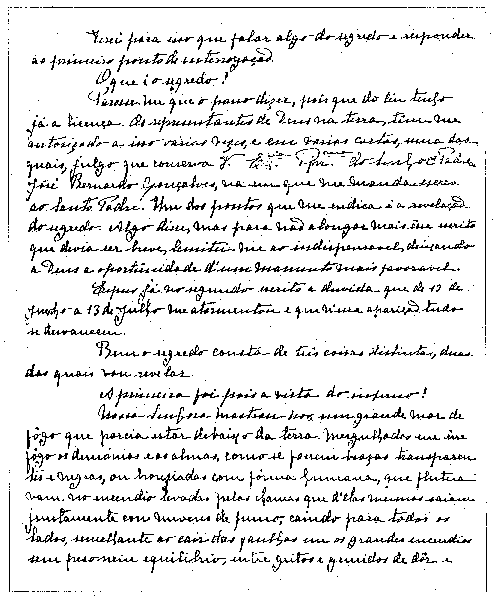 Terei para isso que falar algo do segredo e responder
ao primeiro ponto de interrogação.
O que é o segredo?
Parece-me que o posso dizer, pois que do Ceu tenho
já a licença. Os representantes de Deus na terra, teem-me
autorizado a isso varias vezes, e em varias cartas, uma das
quais, julgo que conserva V. do Senhor Padre
José Bernardo Gonçalves, na em que me manda escrever
ao Santo Padre. Um dos pontos que me indica é a revelação
do segredo. Algo disse, mas para não alongar mais esse escrito
que devia ser breve, limitei-me ao indispensavel, deixando
a Deus a oportunidade d'um momento mais favoravel.
Expus já no segundo escrito a duvida que de 13 de
Junho a 13 de Julho me atormentou e que n'essa aparição tudo
se desvaneceu.
Bem o segredo consta de tres coisas distintas, duas
das quais vou revelar.
A primeira foi pois a vista do inferno!
Nossa Senhora mostrou-nos um grande mar de
fôgo que parcia estar debaixo da terra. Mergulhados em êsse
fôgo os demónios e as almas, como se fossem brazas transparen
tes e negras, ou bronziadas com fórma humana, que flutua
vam no incendio levadas pelas chamas que d'elas mesmas saiam
juntamente com nuvens de fumo, caindo para todos os
lados, semelhante ao cair das faulhas em os grandes incendios
sem peso nem equilibrio, entre gritos e gemidos de dôr e